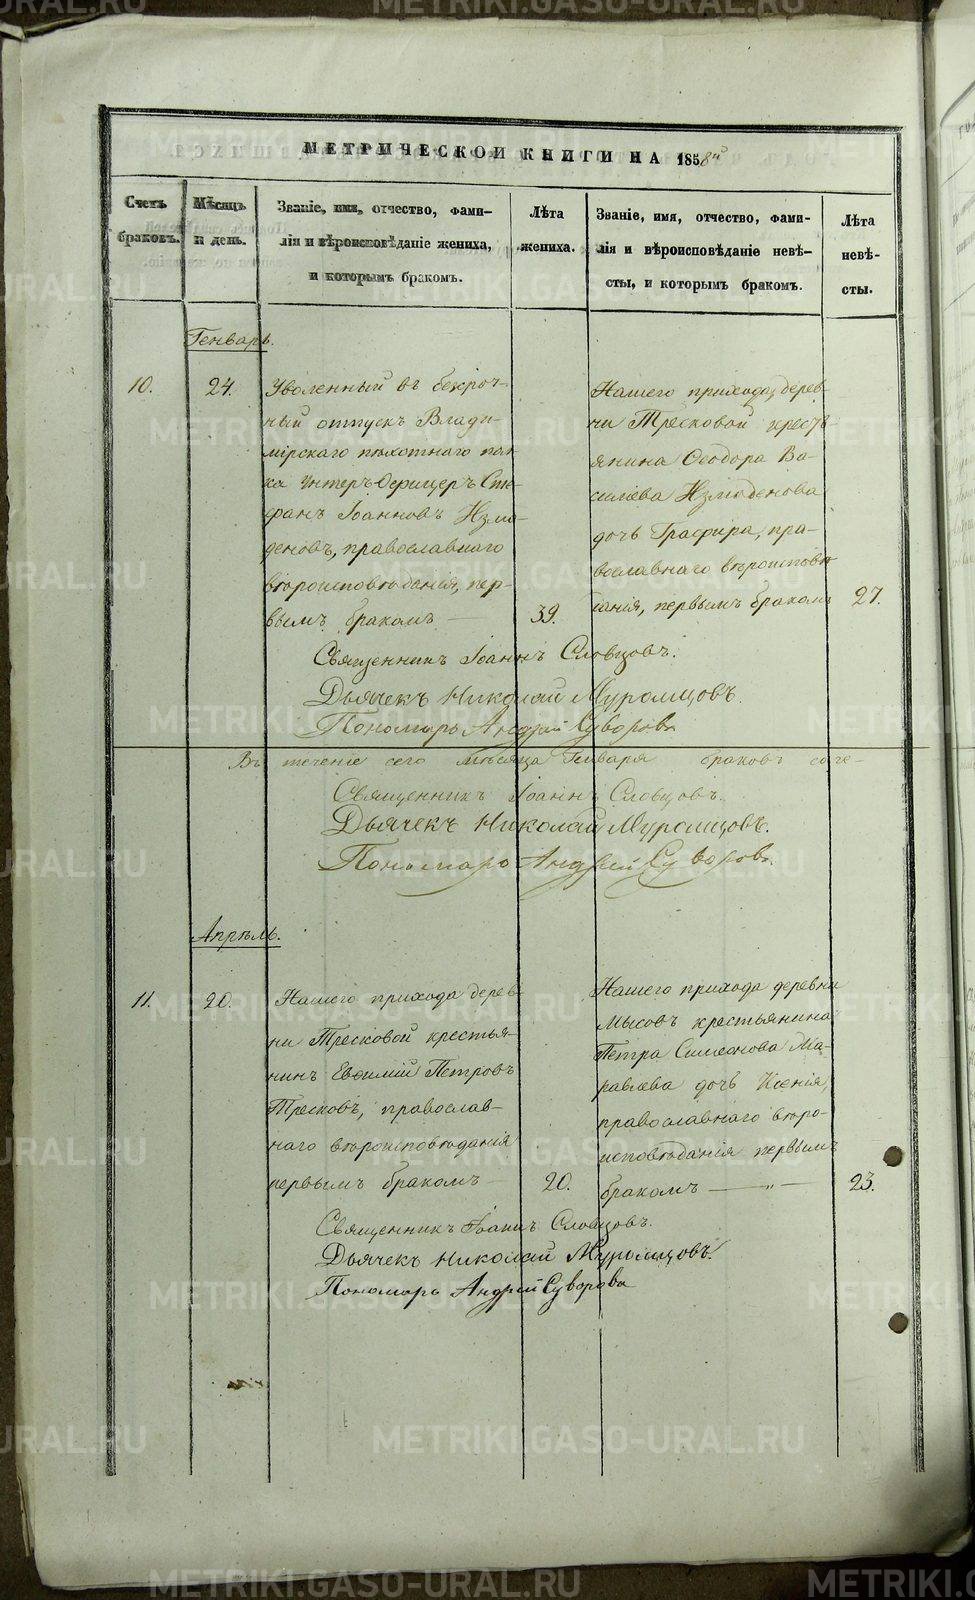 МЕТРИЧЕСКОЙ КНИГИ НА 1858й
Счетъ браковъ.
Мѣсяцъ и день.
Званіе, имя, отчество, фами-
лія и вѣроисповѣданіе жениха,
и которымъ бракомъ.
Лѣта
жениха.
Званіе, имя, отчество, фами-
лія и вѣроисповѣданіе невѣ-
сты, и которымъ бракомъ.
Лѣта
невѣ-
сты.
Генварь.
10.
24.
Уволенный въ безсроч-
ный отпускъ Влади-
мірскаго пѣхотнаго пол-
ка Унтеръ-Офицеръ Сте-
фанъ Іоанновъ Измо-
деновъ, православнаго
вѣроисповѣданія, пер-
вымъ бракомъ —
39.
Нашего прихода, дерев-
ни Тресковой крестья-
янина Ѳеодора Ва-
силіева Измоденова
дочь Глафира, пра-
вославнаго вѣроисповѣ-
данія, первымъ бракомъ
27.
Священникъ Іоаннъ Словцовъ.
Дьячекъ Николай Муромцовъ.
Пономарь Андрей Суворовъ
Въ теченіе сего мѣсяца Генваря браковъ
Священникъ Іоаннъ Словцовъ.
Дьячекъ Николай Муромцовъ.
Пономарь Андрей Суворовъ.
Апрѣль.
11.
20.
Нашего прихода дерев-
ни Тресковой крестья-
нинъ Евѳимій Петровъ
Тресковъ, православ-
наго вѣроисповѣданія
первымъ бракомъ —
20.
Нашего прихода деревни
Мысовъ крестьянина
Петра Симеонова Жу-
равлева дочь Ксенія,
православнаго вѣро-
исповѣданія первымъ
бракомъ — „ —
23.
Священникъ Іоаннъ Словцовъ.
Дьячекъ Николай Муромцовъ.
Пономарь Андрей Суворовъ
METRIKI.GASO-URAL.RU